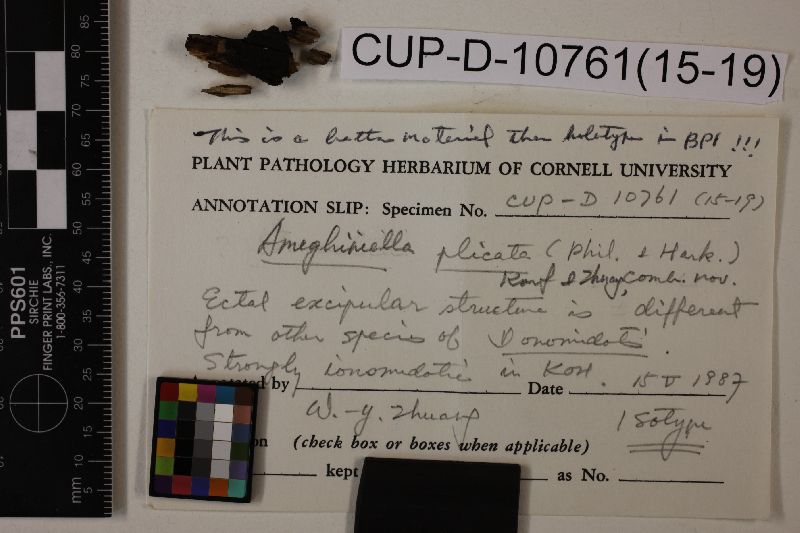 CUP-D-10761(15-19)
This is a better material than holotype in BPI !!!
PLANT PATHOLOGY HERBARIUM OF CORNELL UNIVERSITY
ANNOTATION SLIP: Specimen No. CUP-D 10761 (15-19)
Ameghiniella plicata (Phil. & Hark.)
Korf & Zhuang, comb. nov.
Ectal excipular structure is different
from other species of Ionomidotis.
Strongly ionomidotic in KOH.
by Date 15 V 1987
W.-y. Zhuang Isotype
(check box or boxes when applicable)
kept as No.
PPS601
SIRCHIE
FINGER PRINT LABS., INC.
1-800-356-7311
85
80
75
70
65
60
55
50
45
40
35
30
25
20
15
10
5
mm